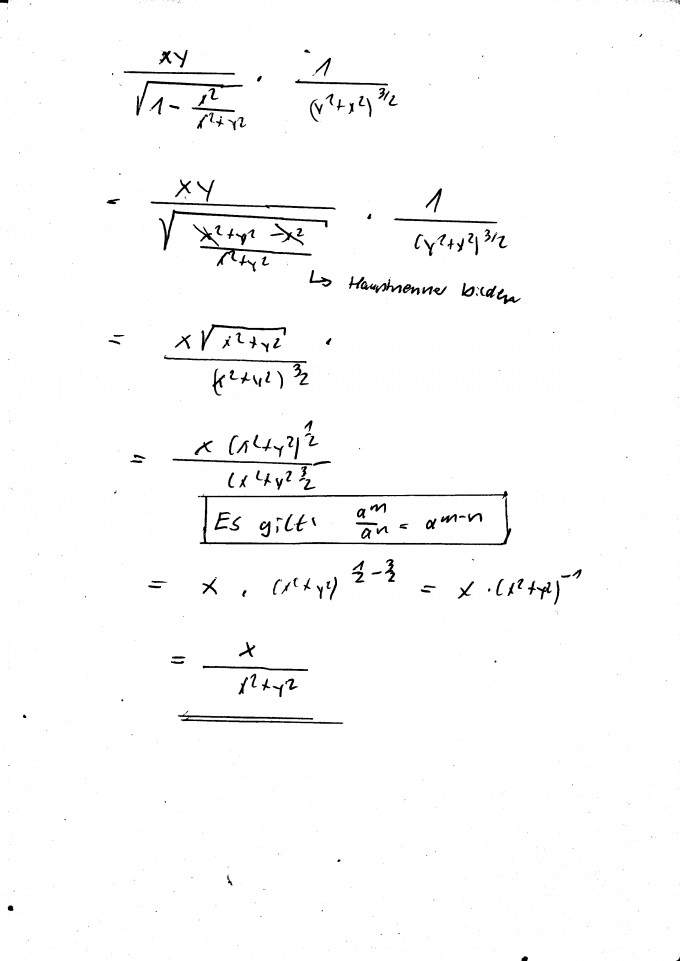 xy / √(1 - x²/(x²+y²)) · 1 / (y²+x²)^3/2
= xy / √((x²+y² - x²)/(x²+y²)) · 1 / (y²+x²)^3/2
↳ Hauptnenner bilden
= x √(x²+y²) / (x²+y²)^3/2 ·
= x (x²+y²)^1/2 / (x²+y²^3/2
Es gilt: a^m / a^n = a^m-n
= x · (x²+y²)^1/2-3/2 = x · (x²+y²)^-1
= x / x²+y²